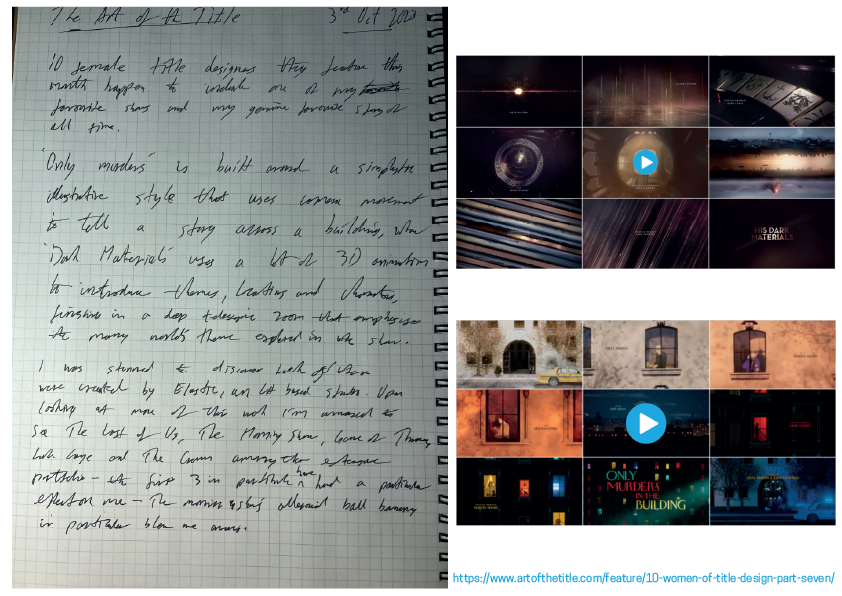 The Art of the Title 3rd Oct 2023
10 female title designers they feature this
month happen to include one of my
favourite shows and my genuine favourite story of
all time.
'Only murders' is built around a simplistic
illustrative style that uses camera movement
to tell a story across a building, when
'Dark Materials' uses a lot of 3D animation
to introduce themes, locations and characters,
finishing in a deep telescopic zoom that emphasises
the many worlds theme explored in the show.
I was stunned to discover both of
were created by Elastic, an LA based studio. Upon
looking at more of this work I'm amazed to
see The Last of Us, The Morning Show, Game of Thrones
Luke Cage and The Crown among their extensive
portfolio - the first 3 in particular have had a particular
effect on me - The morning show's ball
in particular blew me away.
HIS DARK
MATERIALS
ONLY
MURDERS
IN THE
BUILDING
https://www.artofthetitle.com/feature/10-women-of-title-design-part-seven/